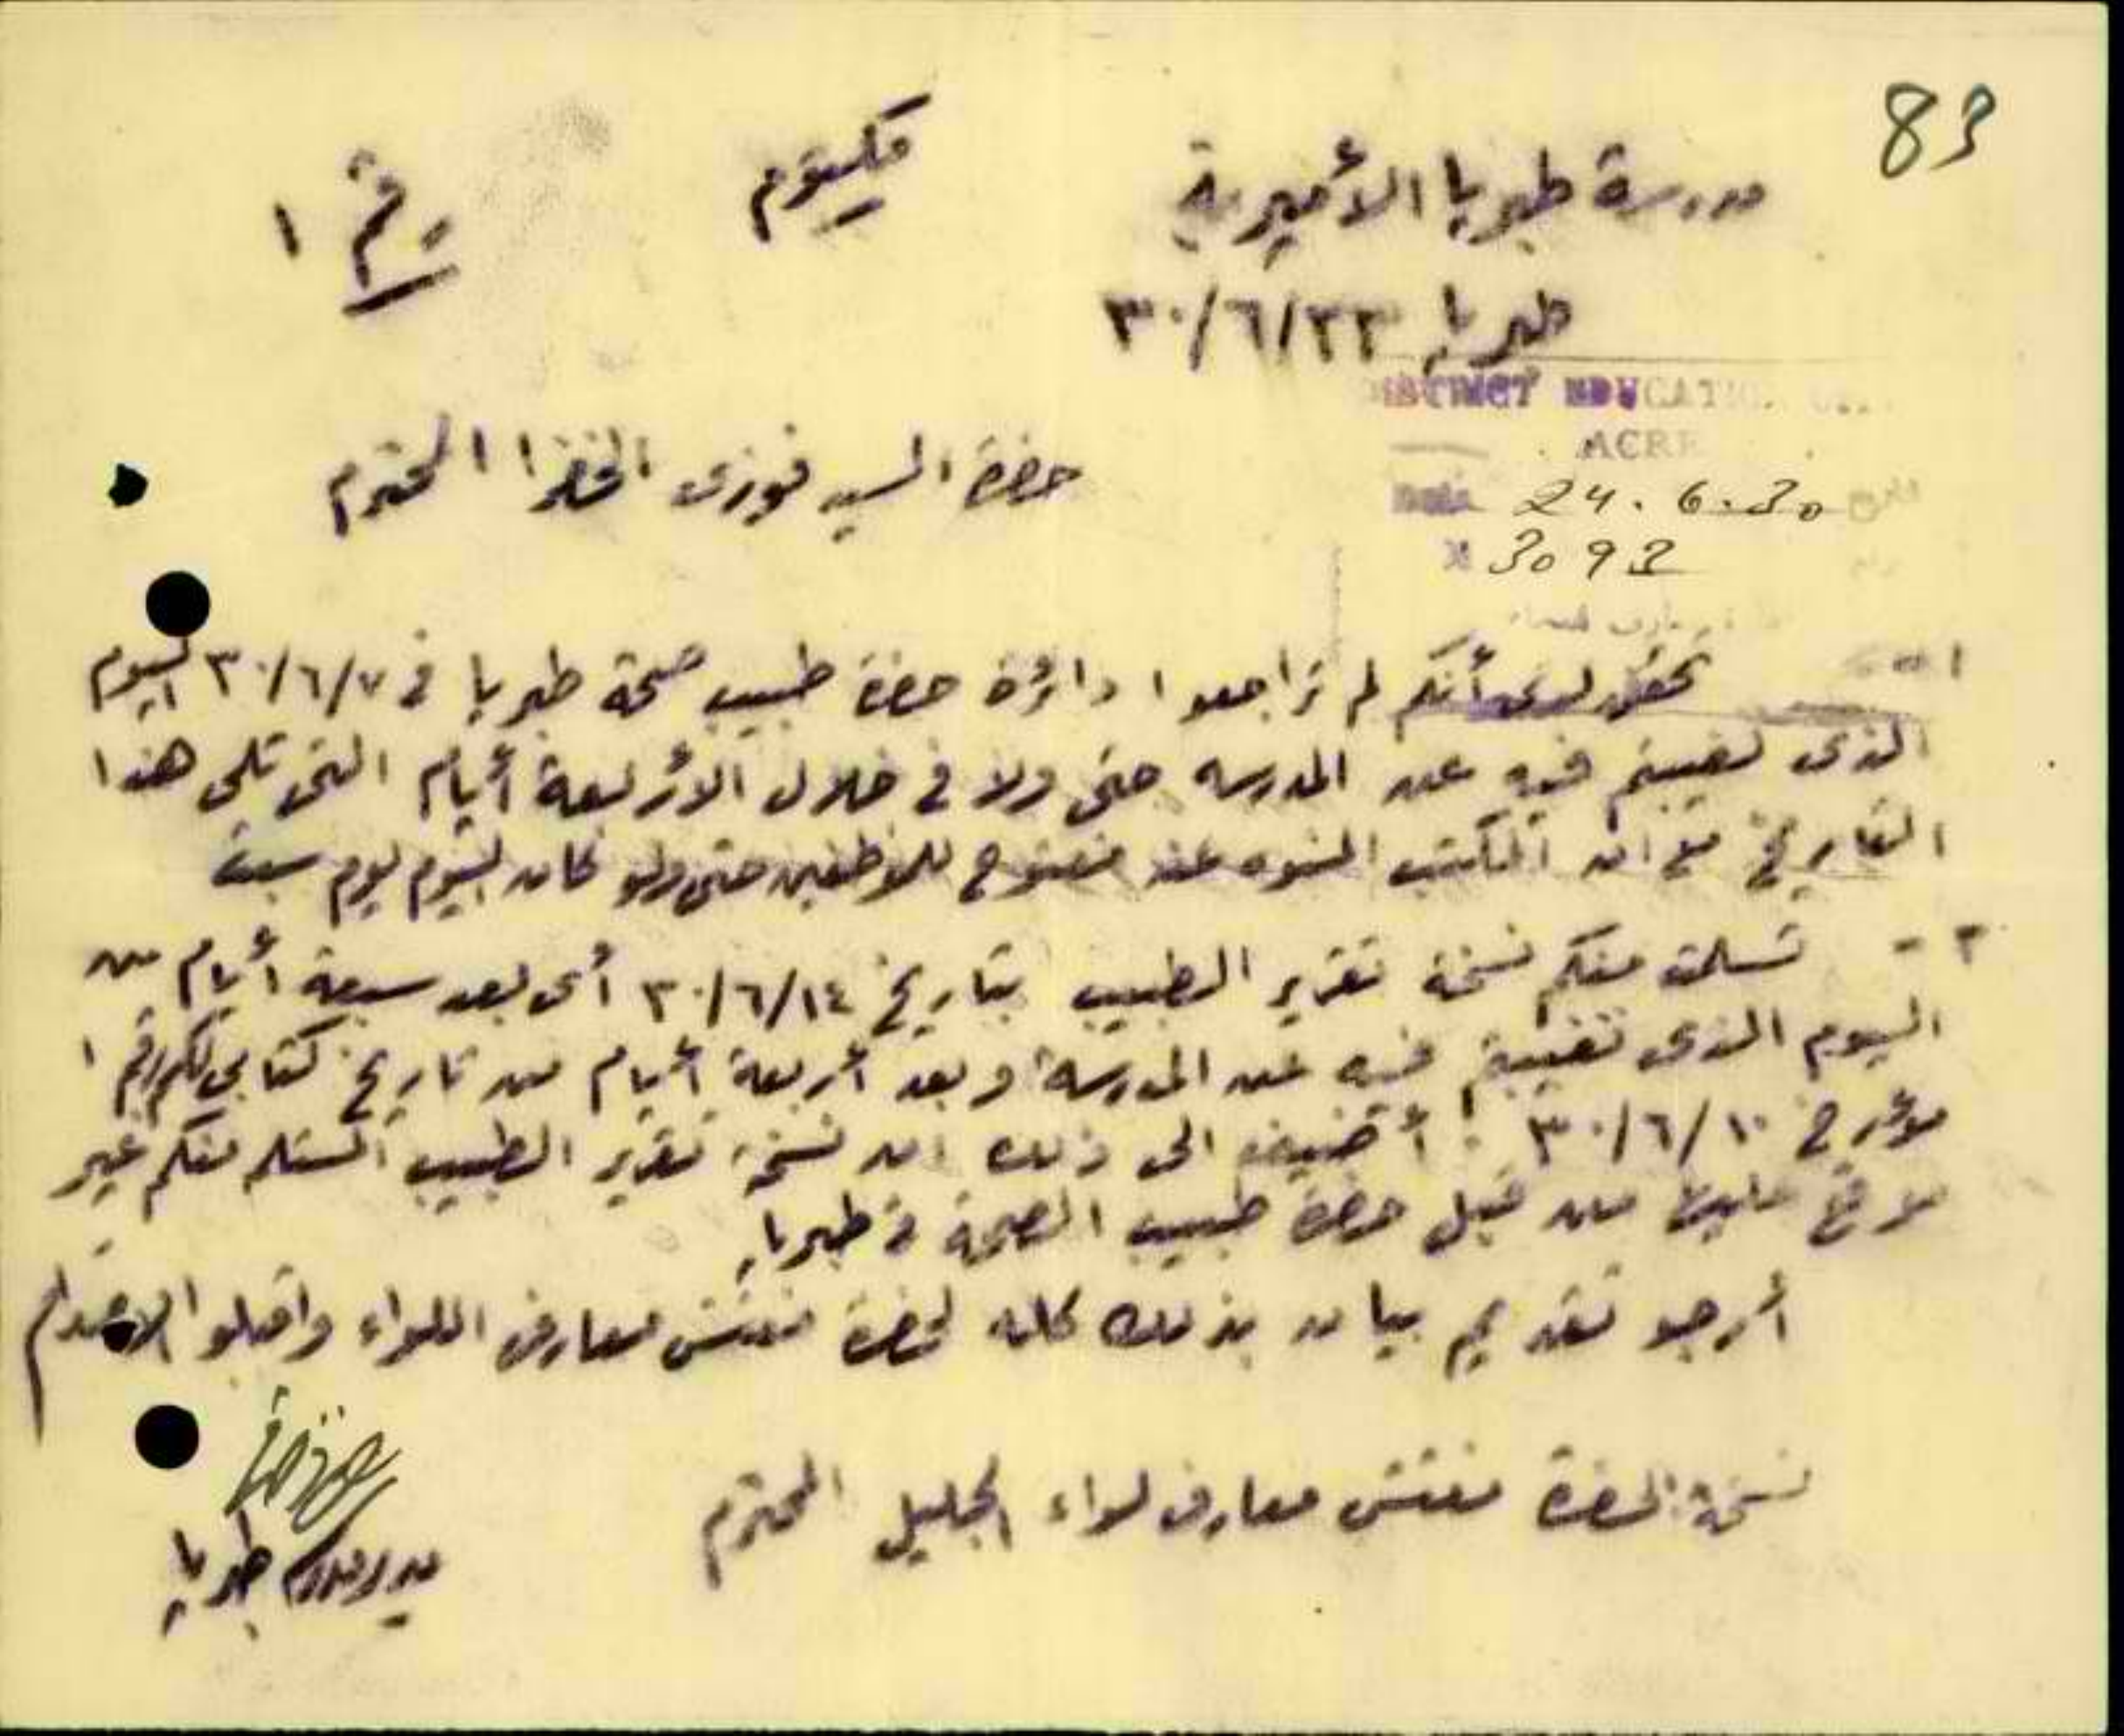 83
مدرسة طبريا الأميرية
مكتوم
رقم ١
طبريا ٣٠/٦/٢٣
DISTRICT EDUCATION
ACRE
Date 24.6.30
3093
حضرة السيد فوزي الخضرا المحترم
١ - تحقق لدى أنكم لم تراجعوا دائرة حضرة طبيب صحة طبريا في ٣٠/٦/٧ اليوم
الذى تغيبتم فيه عن المدرسه حتى ولا في خلال الأربعة أيام التي تلى هذا
التاريخ مع ان المكتب المنوه عنه مفتوح للموظفين حتى ولو كان اليوم يوم سبت
٢ - تسلمت منكم نسخة تقرير الطبيب بتاريخ ٣٠/٦/١٤ أى بعد سبعة أيام من
اليوم الذى تغيبتم فيه عن المدرسة وبعد أربعة أيام من تاريخ كتابي لكم رقم ١
مؤرخ ٣٠/٦/١٠. أضيف الى ذلك ان نسخة تقرير الطبيب المستلم منكم غير
موقع عليها من قبل حضرة طبيب الصحة في طبريا.
أرجو تقديم بيان بذلك كله لحضرة مفتش معارف اللواء واقبلوا الاحترام
نسخة لحضرة مفتش معارف لواء الجليل المحترم
مدير مدرسة طبريا